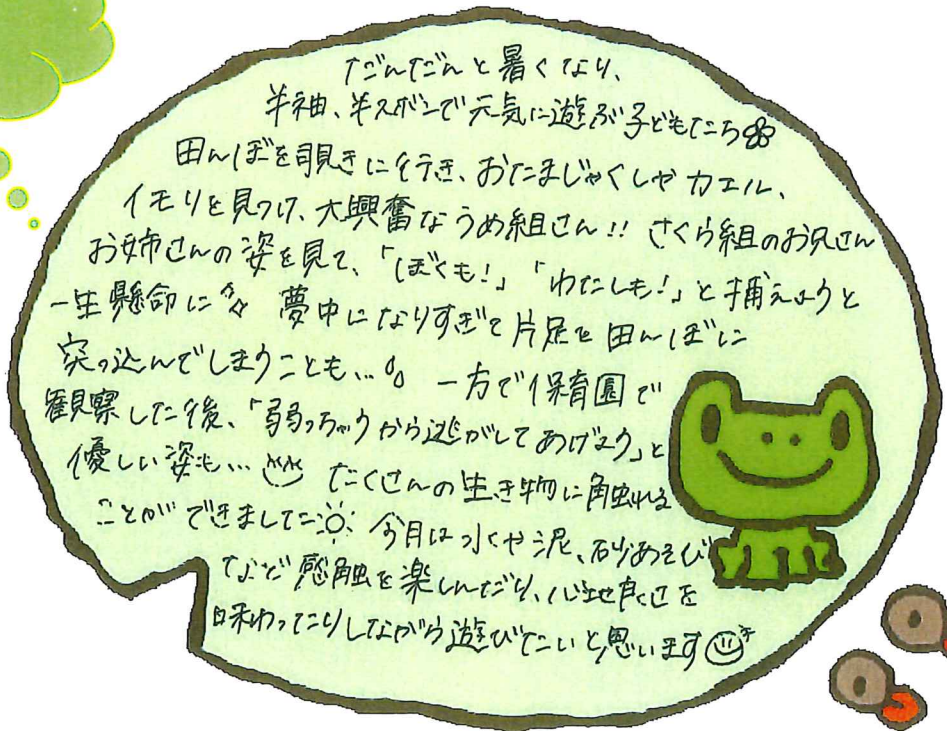 だんだんと暑くなり、
半袖、半ズボンで元気に遊ぶ子どもたち
田んぼを覗きに行き、おたまじゃくしやカエル、
イモリを見つけ、大興奮なうめ組さん!! さくら組のお兄さん
お姉さんの姿を見て、「ぼくも!」「わたしも!」と捕えようと
一生懸命に 夢中になりすぎて片足を田んぼに
突っ込んでしまうことも... 一方で保育園で
観察した後、「弱っちゃうから逃がしてあげよう」と
優しい姿も... たくさんの生き物に触れる
ことができました 今月は水や泥、砂あそび
など感触を楽しんだり、心地良さを
味わったりしながら遊びたいと思います